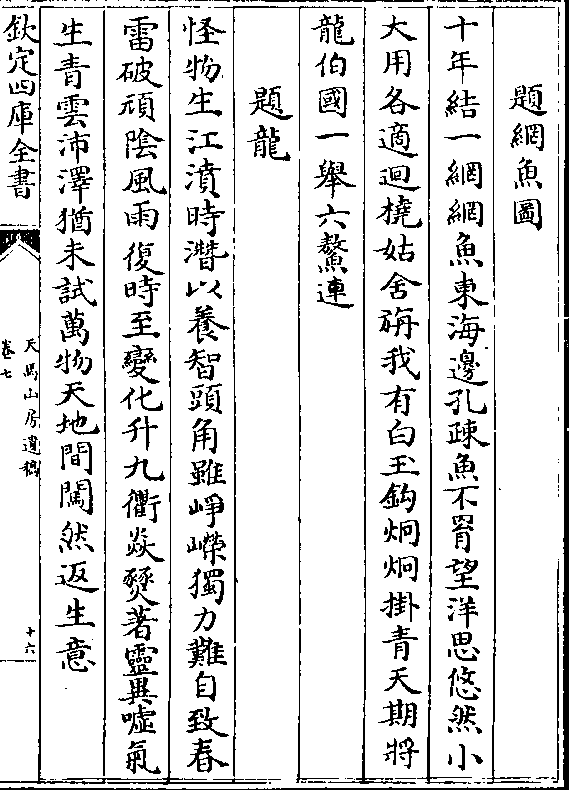 題網魚圖
十年結一網網魚東海邊孔疎魚不罥望洋思悠然小
大用各適迴橈姑舍旃我有白玉鈎炯炯掛青天期將
龍伯國一舉六鰲連
題龍
怪物生江濆時濳以養智頭角雖崢嶸獨力難自致春
雷破頑陰風雨復時至變化升九衢焱熒著靈異噓氣
生青雲沛澤猶未試萬物天地間闖然返生意
欽定四庫全書
天馬山房遺稿
卷七
十六